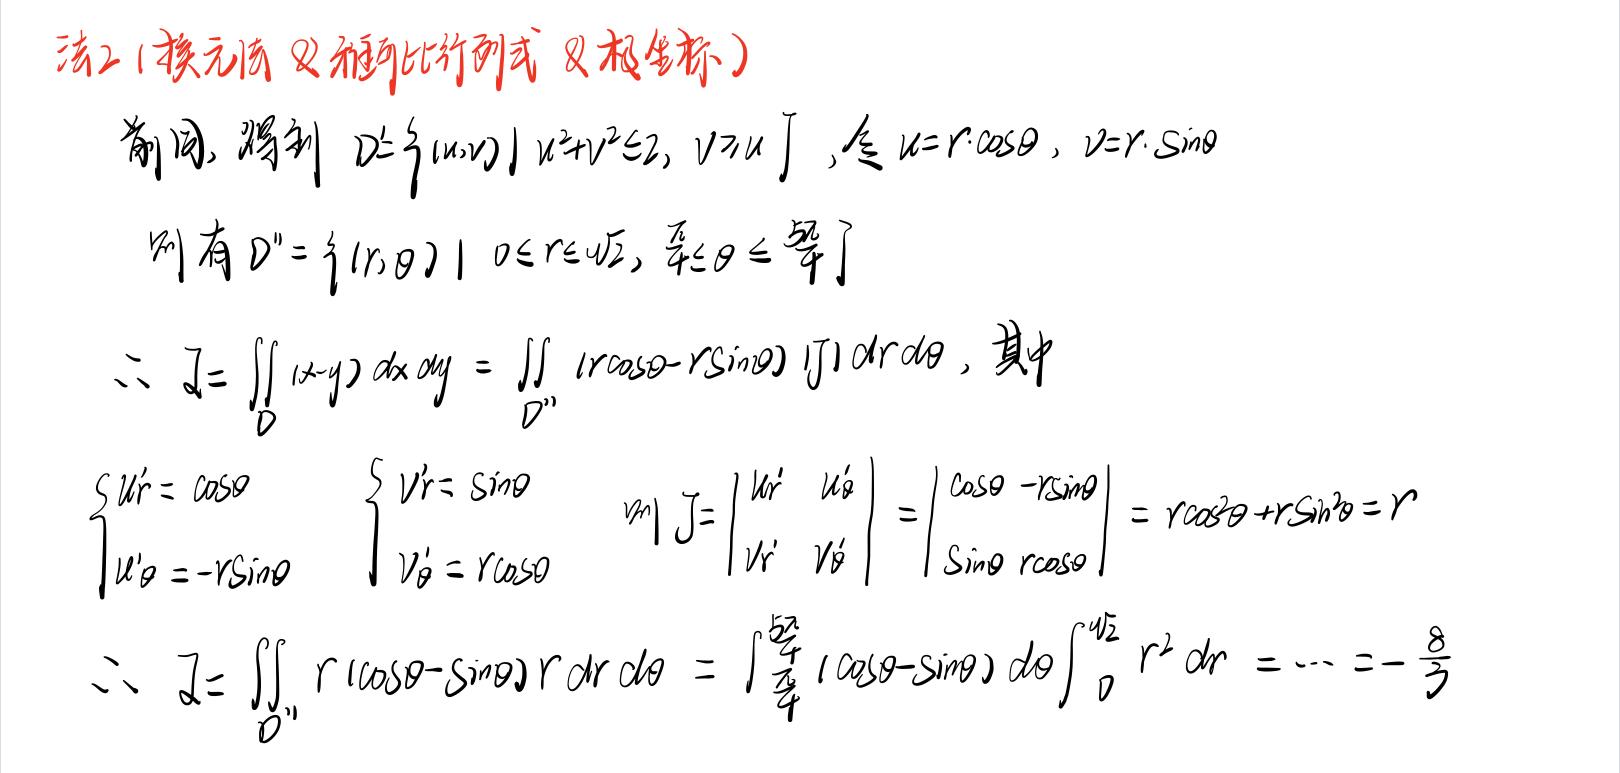 法2 (换元法 & 雅可比行列式 & 极坐标)
前同, 得到 D'={(u,v) | u²+v²≤2, v≥u}, 令 u=r·cosθ, v=r·sinθ
则有 D''={(r,θ) | 0≤r≤√2, π/4≤θ≤5π/4}
∴ I=∬_D (x-y) dx dy = ∬_D'' (rcosθ-rsinθ) |J| dr dθ, 其中
{u'r = cosθ {v'r = sinθ 则 J= |u'r u'θ| = |cosθ -rsinθ| = rcos²θ+rsin²θ=r
{u'θ = -rsinθ {v'θ = rcosθ |v'r v'θ| |sinθ rcosθ|
∴ I=∬_D'' r(cosθ-sinθ) r dr dθ = ∫_{π/4}^{5π/4} (cosθ-sinθ) dθ ∫_0^{√2} r² dr = ··· = -8/3